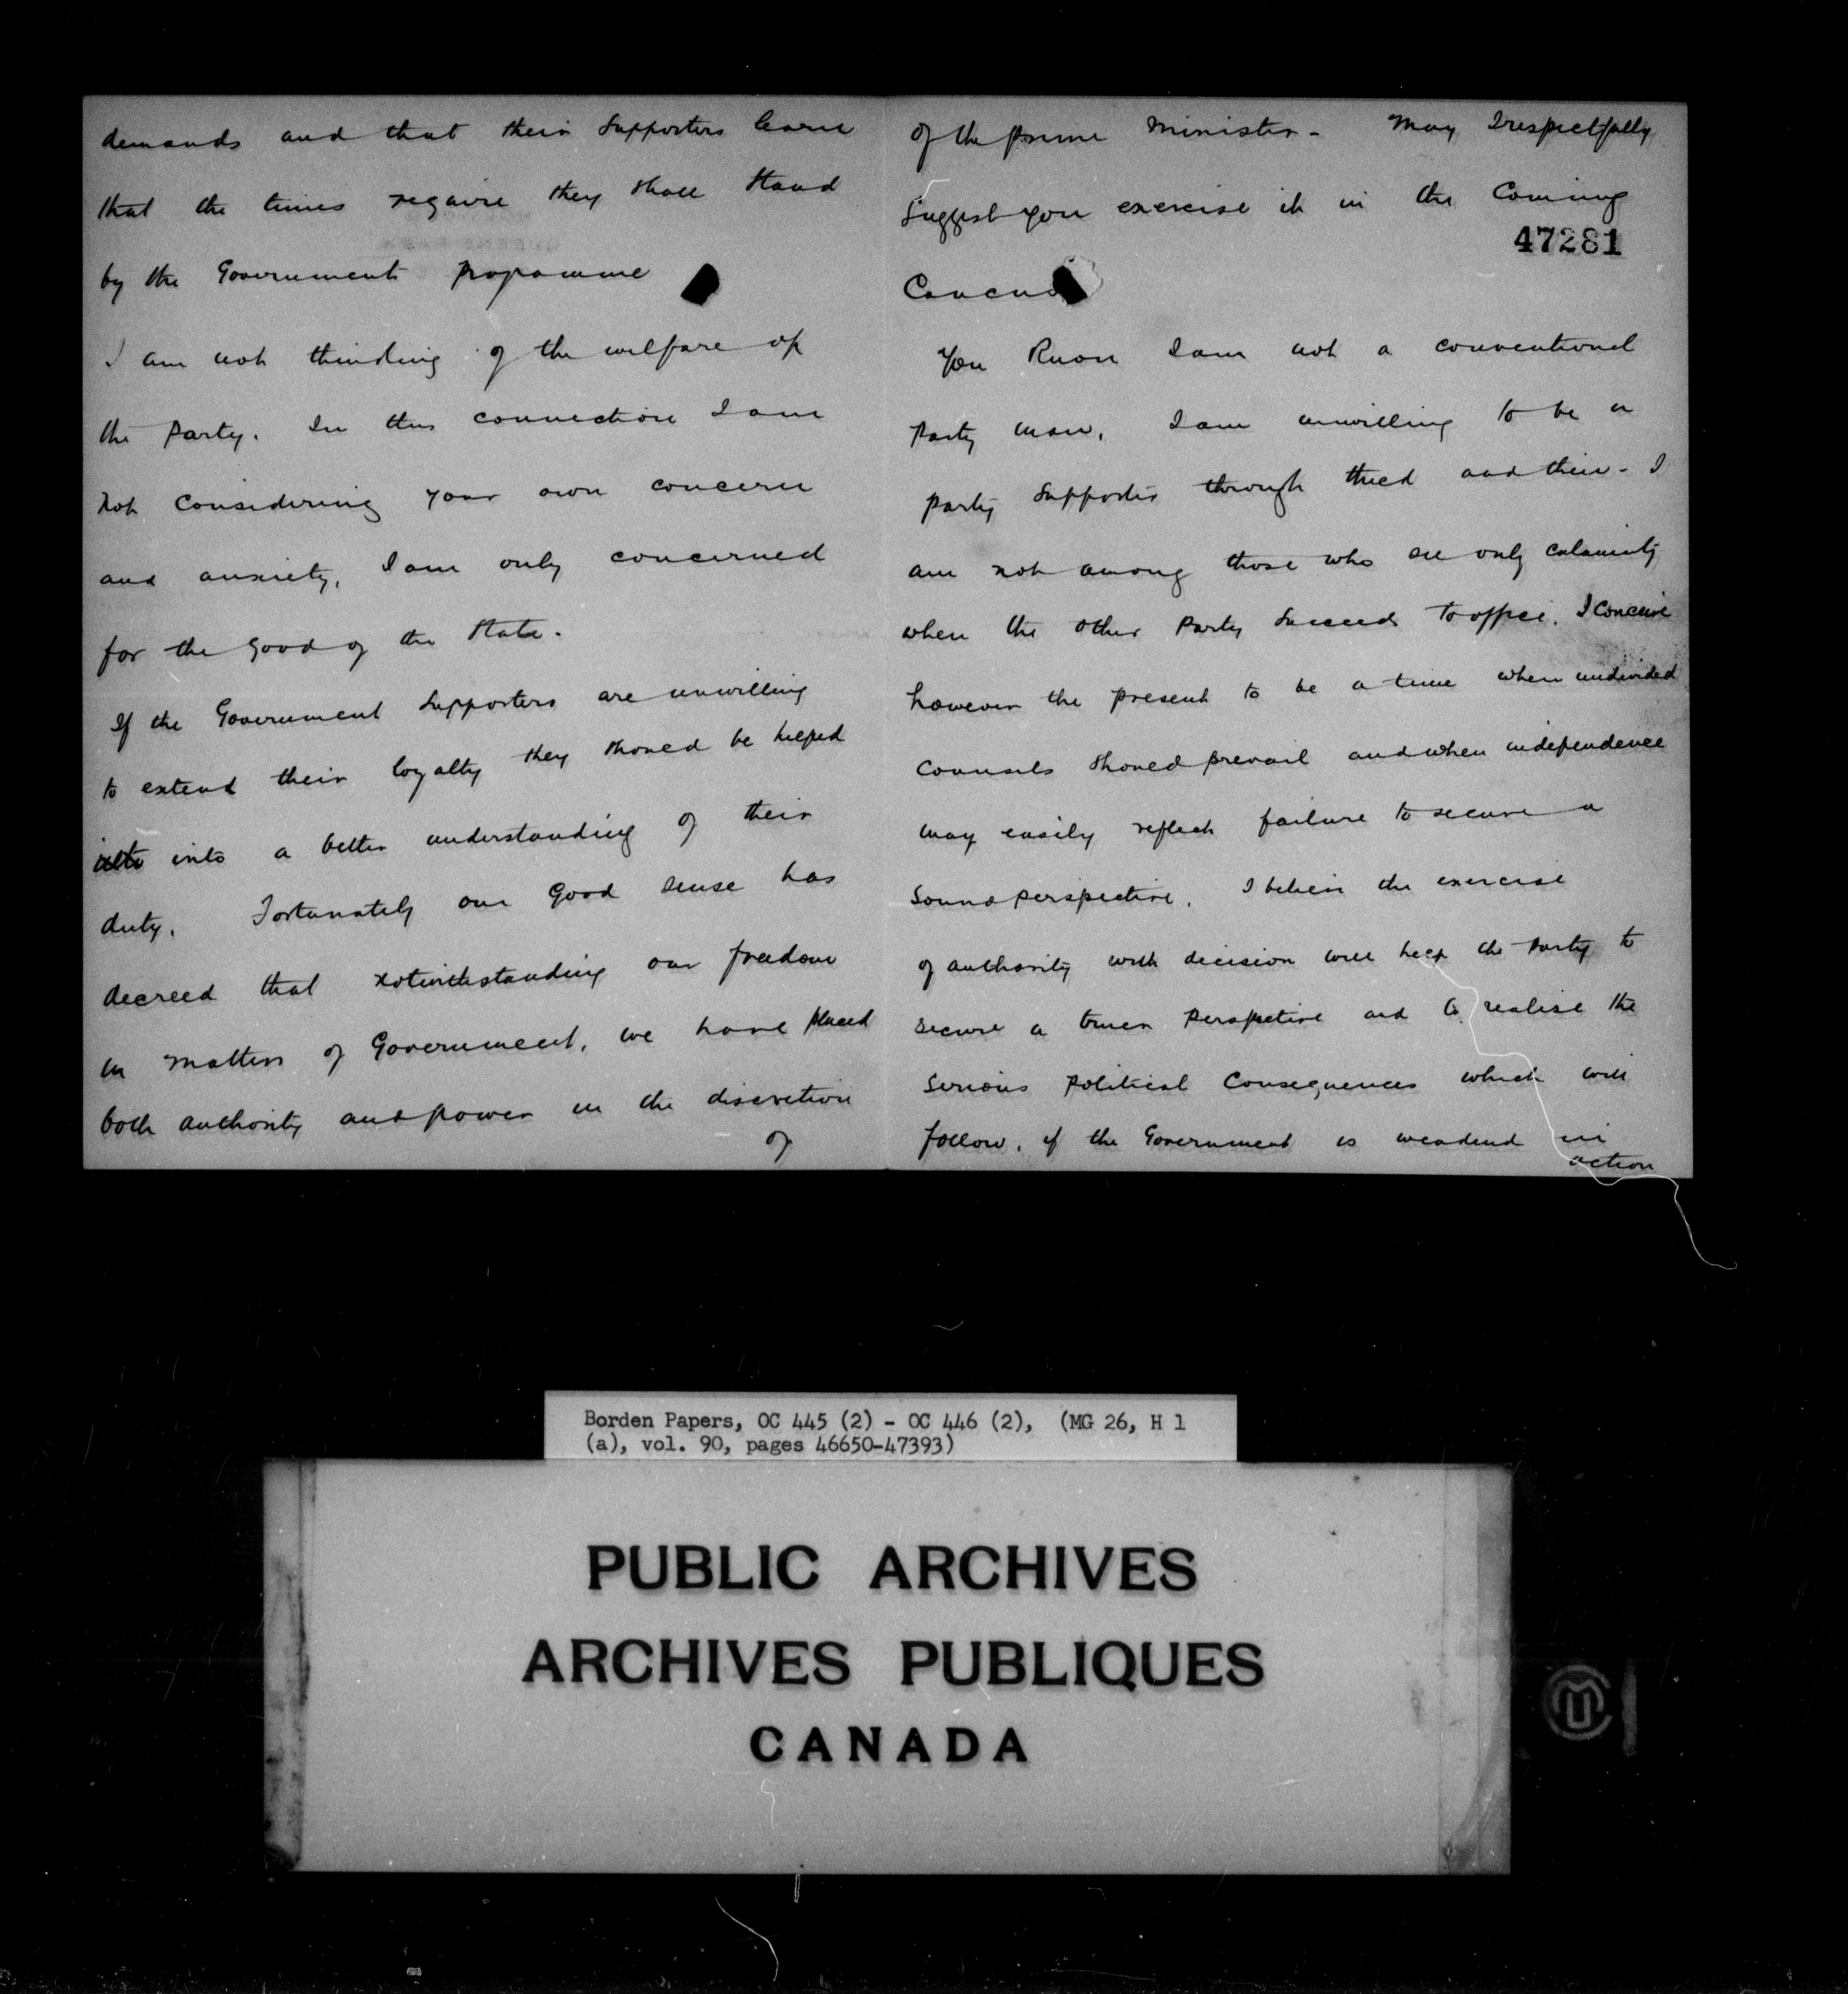 demands and that their supporters learn
that the times require they shall stand
by the Government programme
I am not thinking of the welfare of
the party. In this connection I am
not considering your own concern
and anxiety, I am only concerned
for the good of the State.
If the Government supporters are unwilling
to extend their loyalty they should be helped
into a better understanding of their
duty. Fortunately our good sense has
decreed that notwithstanding our freedom
in matters of Government, we have placed
both authority and power in the discretion
of
of the prime minister - May I respectfully
suggest you exercise it in the Coming
47281
Caucus
You Know I am not a conventional
party man, I am unwilling to be a
party supporter through thick and thin - I
am not among those who see only calamity
when the other party succeeds to office. I conceive
however the present to be a time when undivided
counsels should prevail and when independence
may easily reflect failure to secure a
sound perspective. I believe the exercise
of authority with decision will help the party to
secure a truer perspective and to realise the
serious political consequences which will
follow, if the Government is weakened in
action
Borden Papers, OC 445 (2) - OC 446 (2), (MG 26, H 1
(a), vol. 90, pages 46650-47393)
PUBLIC ARCHIVES
ARCHIVES PUBLIQUES
CANADA